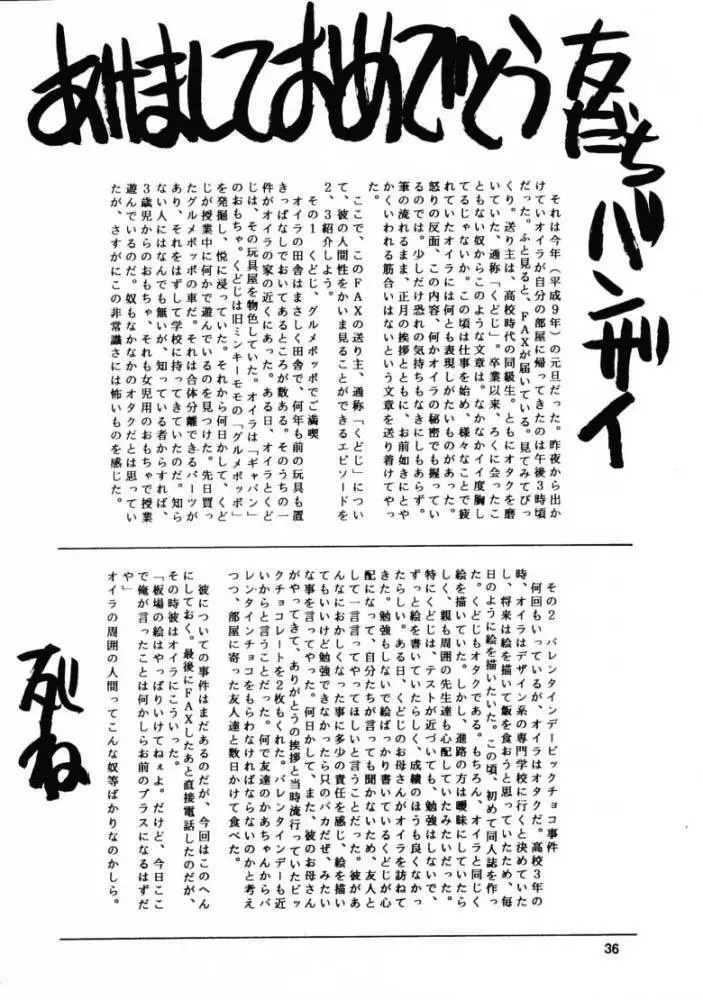 友だちバンザイ
あけましておめでとう
それは今年(平成9年)の元旦だった。昨夜から出か
けていオイラが自分の部屋に帰ってきたのは午後3時頃
だった。ふと見ると、FAXが届いている。見てみてびっ
くり。送り主は、高校時代の同級生。ともにオタクを磨
いていた、通称「くどじ」。卒業以来、ろくに会ったこ
ともない奴からこのような文章は。なかなかイイ度胸し
てるじゃないか。この頃は仕事を始め、様々なことで疲
れていたオイラには何とも表現しがたいものがあった。
怒りの反面、この内容、何かオイラの秘密でも握ってい
るのでは。少しだけ恐れの気持ちもなきにしもあらず。
筆の流れるまま、正月の挨拶とともに、お前如きにとや
かくいわれる筋合いはないという文章を送り着けてやっ
た。
ここで、このFAXの送り主、通称「くどじ」につい
て、彼の人間性をかいま見ることができるエピソードを
2、3紹介しよう。
その1 くどじ、グルメポッポでご満喫
オイラの田舎はまさしく田舎で、何年も前の玩具も置
きっぱなしでおいてあるところが数ある。そのうちの一
件がオイラの家の近くにあった。ある日、オイラとくど
じは、その玩具屋を物色していた。オイラは「ギャバン」
のおもちゃ。くどじは旧ミンキーモモの「グルメポッポ」
を発掘し、悦に浸っていた。それから何日かして、くど
じが授業中に何かで遊んでいるのを見つけた。先日買っ
たグルメポッポの車だ。それは合体分離できるパーツが
あり、それをはずして学校に持ってきていたのだ。知ら
ない人にはなんでも無いが、知っている者からすれば、
3歳児からのおもちゃ、それも女児用のおもちゃで授業
遊んでいるのだ。奴もなかなかのオタクだとは思ってい
たが、さすがにこの非常識さには怖いものを感じた。
その2 バレンタインデービックチョコ事件
何回もいっているが、オイラはオタクだ。高校3年の
時、オイラはデザイン系の専門学校に行くと決めていた
し、将来は絵を描いて飯を食おうと思っていたため、毎
日のように絵を描いたいた。この頃、初めて同人誌を作っ
た。くどじもオタクである。もちろん、オイラと同じく
絵を描いていた。しかし、進路の方は曖昧にしていたら
しく、親も周囲の先生達も心配していたみたいだった。
特にくどじは、テストが近づいても、勉強はしないで、
ずっと絵を書いていたらしく、成績のほうも良くなかっ
たらしい。ある日、くどじのお母さんがオイラを訪ねて
きた。勉強もしないで絵ばっかり書いているくどじが心
配になって、自分たちが言っても聞かないため、友人と
して一言言ってやってほしいと言うことだった。彼があ
んなにおかしくなった事に多少の責任を感じ、絵を描い
てもいいけど勉強できなかったら只のバカだぜ、みたい
な事を言ってやった。何日かして、また、彼のお母さん
がやってきて、ありがとうの挨拶と当時流行っていたビッ
クチョコレートを2枚もくれた。バレンタインデーも近
いからと言うことだった。何で友達のかあちゃんからバ
レンタインチョコをもらわなければならないのかと考え
つつ、部屋に寄った友人達と数日かけて食べた。
彼についての事件はまだあるのだが、今回はこのへん
にしておく。最後にFAXしたあと直接電話したのだが、
その時彼はオイラにこういった。
「板場の絵はやっぱりいけてねぇよ。だけど、今日ここ
で俺が言ったことは何かしらお前のプラスになるはずだ
や」
オイラの周囲の人間ってこんな奴等ばかりなのかしら。
死ね
36